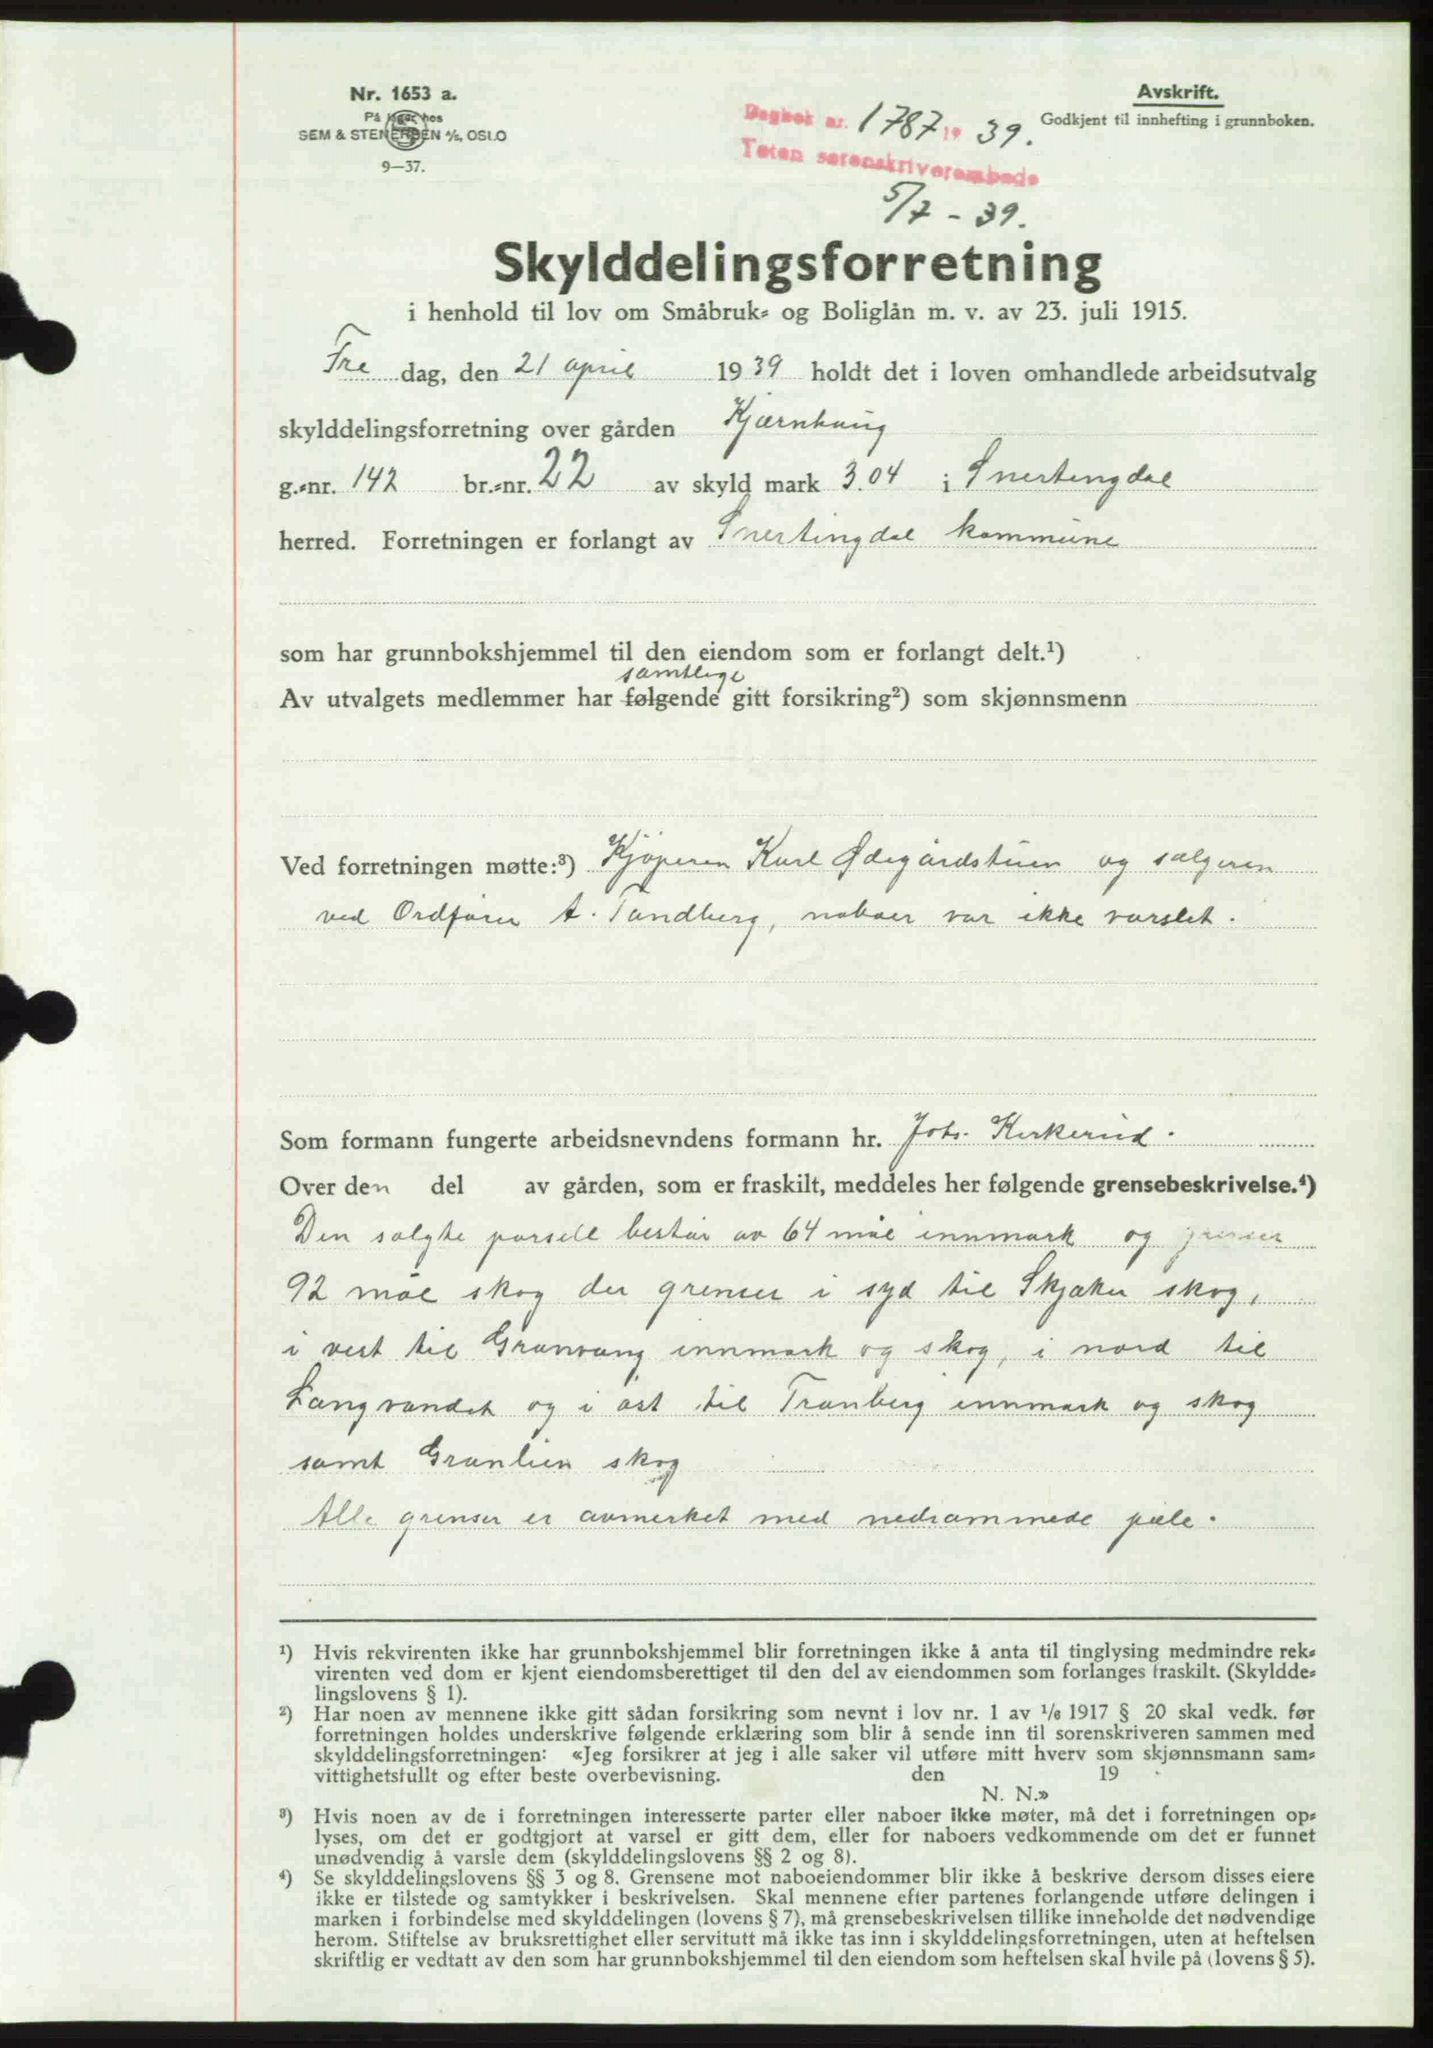 Nr. 1653 a.
På lager hos
SEM & STENERSEN A/S, OSLO
9—37.
Avskrift.
Godkjent til innhefting i grunnboken.
Dagbok nr. 1787 19 39.
Toten sorenskriverembede
5/7 - 39.
Skylddelingsforretning
i henhold til lov om Småbruk- og Boliglån m. v. av 23. juli 1915.
Fre dag, den 21 april 1939 holdt det i loven omhandlede arbeidsutvalg
skylddelingsforretning over gården Kjærnhaug
g.-nr. 142 br.-nr. 22 av skyld mark 3.04 i Snertingdal
herred. Forretningen er forlangt av Snertingdal kommune
som har grunnbokshjemmel til den eiendom som er forlangt delt.¹)
samtlige
Av utvalgets medlemmer har følgende gitt forsikring²) som skjønnsmenn
Ved forretningen møtte:³) Kjøperen Karl Ødegårdstuen og sælgeren
ved Ordfører A. Tandberg, naboer var ikke varslet.
Som formann fungerte arbeidsnevndens formann hr. Johs. Kirkerud.
Over den del av gården, som er fraskilt, meddeles her følgende grensebeskrivelse.⁴)
Den solgte parsell består av 64 mål innmark og grenser
92 mål skog der grenser i syd til Skjæker skog,
i vest til Granvang innmark og skog, i nord til
Langvandet og i øst til Tranberg innmark og skog
samt Granlien skog
Alle grenser er avmerket med nedrammede pæle.
¹) Hvis rekvirenten ikke har grunnbokshjemmel blir forretningen ikke å anta til tinglysing medmindre rek-
virenten ved dom er kjent eiendomsberettiget til den del av eiendommen som forlanges fraskilt. (Skyldde-
lingslovens § 1).
²) Har noen av mennene ikke gitt sådan forsikring som nevnt i lov nr. 1 av 1/6 1917 § 20 skal vedk. før
forretningen holdes underskrive følgende erklæring som blir å sende inn til sorenskriveren sammen med
skylddelingsforretningen: «Jeg forsikrer at jeg i alle saker vil utføre mitt hverv som skjønnsmann sam-
vittighetsfullt og efter beste overbevisning. den 19
N. N.»
³) Hvis noen av de i forretningen interesserte parter eller naboer ikke møter, må det i forretningen op-
lyses, om det er godtgjort at varsel er gitt dem, eller for naboers vedkommende om det er funnet
unødvendig å varsle dem (skylddelingslovens §§ 2 og 8).
⁴) Se skylddelingslovens §§ 3 og 8. Grensene mot naboeiendommer blir ikke å beskrive dersom disses eiere
ikke er tilstede og samtykker i beskrivelsen. Skal mennene efter partenes forlangende utføre delingen i
marken i forbindelse med skylddelingen (lovens § 7), må grensebeskrivelsen tillike inneholde det nødvendige
herom. Stiftelse av bruksrettighet eller servitutt må ikke tas inn i skylddelingsforretningen, uten at heftelsen
skriftlig er vedtatt av den som har grunnbokshjemmel til den eiendom som heftelsen skal hvile på (lovens § 5).